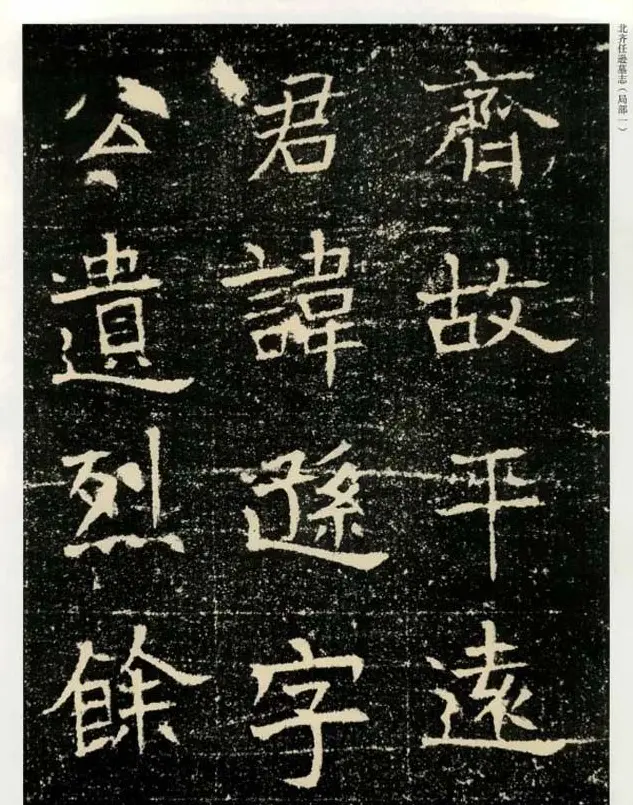 北齐任逊墓志（局部一）
齊故平遠
君諱遜字
公遺烈餘